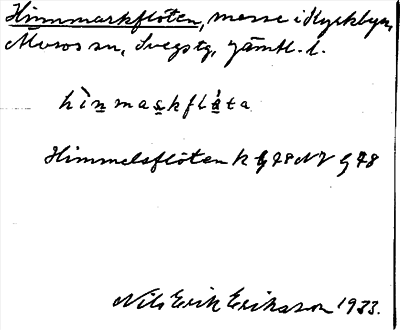 Himmarkflöten, mosse i Kyrkbyn,
Överos sn, Svegs tg, Jämtl. l.
hìnmaskflǻta
Himmelsflöten k G 78 NV G 78
Nils Erik Eriksson 1933.